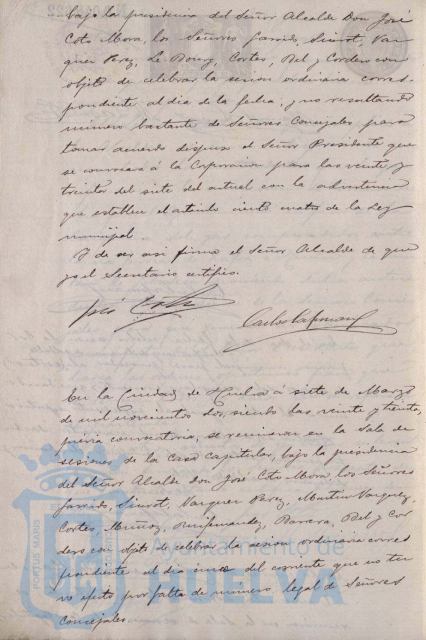 bajo la presidencia del Señor Alcalde Don José
Coto Mora, los Señores Garrido, Siurot, Vaz
quez Perez, Le Bourg, Cortes, Bel y Cordero con
objeto de celebrar la sesion ordinaria corres
pondiente al dia de la fecha, y no resultando
número bastante de Señores Concejales para
tomar acuerdo dispuso el Señor Presidente que
se convocara á la Corporacion para las veinte y
treinta del siete del actual con la advertencia
que establece el articulo ciento cuatro de la Ley
municipal.
Y de ser asi firma el Señor Alcalde de que
yo el Secretario certifico.
José Coto
Carlos
En la Ciudad de Huelva á siete de Marzo
de mil novecientos dos, siendo las veinte y treinta,
previa convocatoria, se reunieron en la Sala de
sesiones de la Casa Capitular, bajo la presidencia
del Señor Alcalde Don José Coto Mora, los Señores
Garrido, Siurot, Vazquez Perez, Martin Vazquez,
Cortes, Muñoz, Barrera, Bel y Cor
dero con objeto de celebrar la sesion ordinaria corres
pondiente al dia del corriente que no tu
vo efecto por falta de número legal de Señores
Concejales.
PORTUS MARIS
Ayuntamiento de
HUELVA